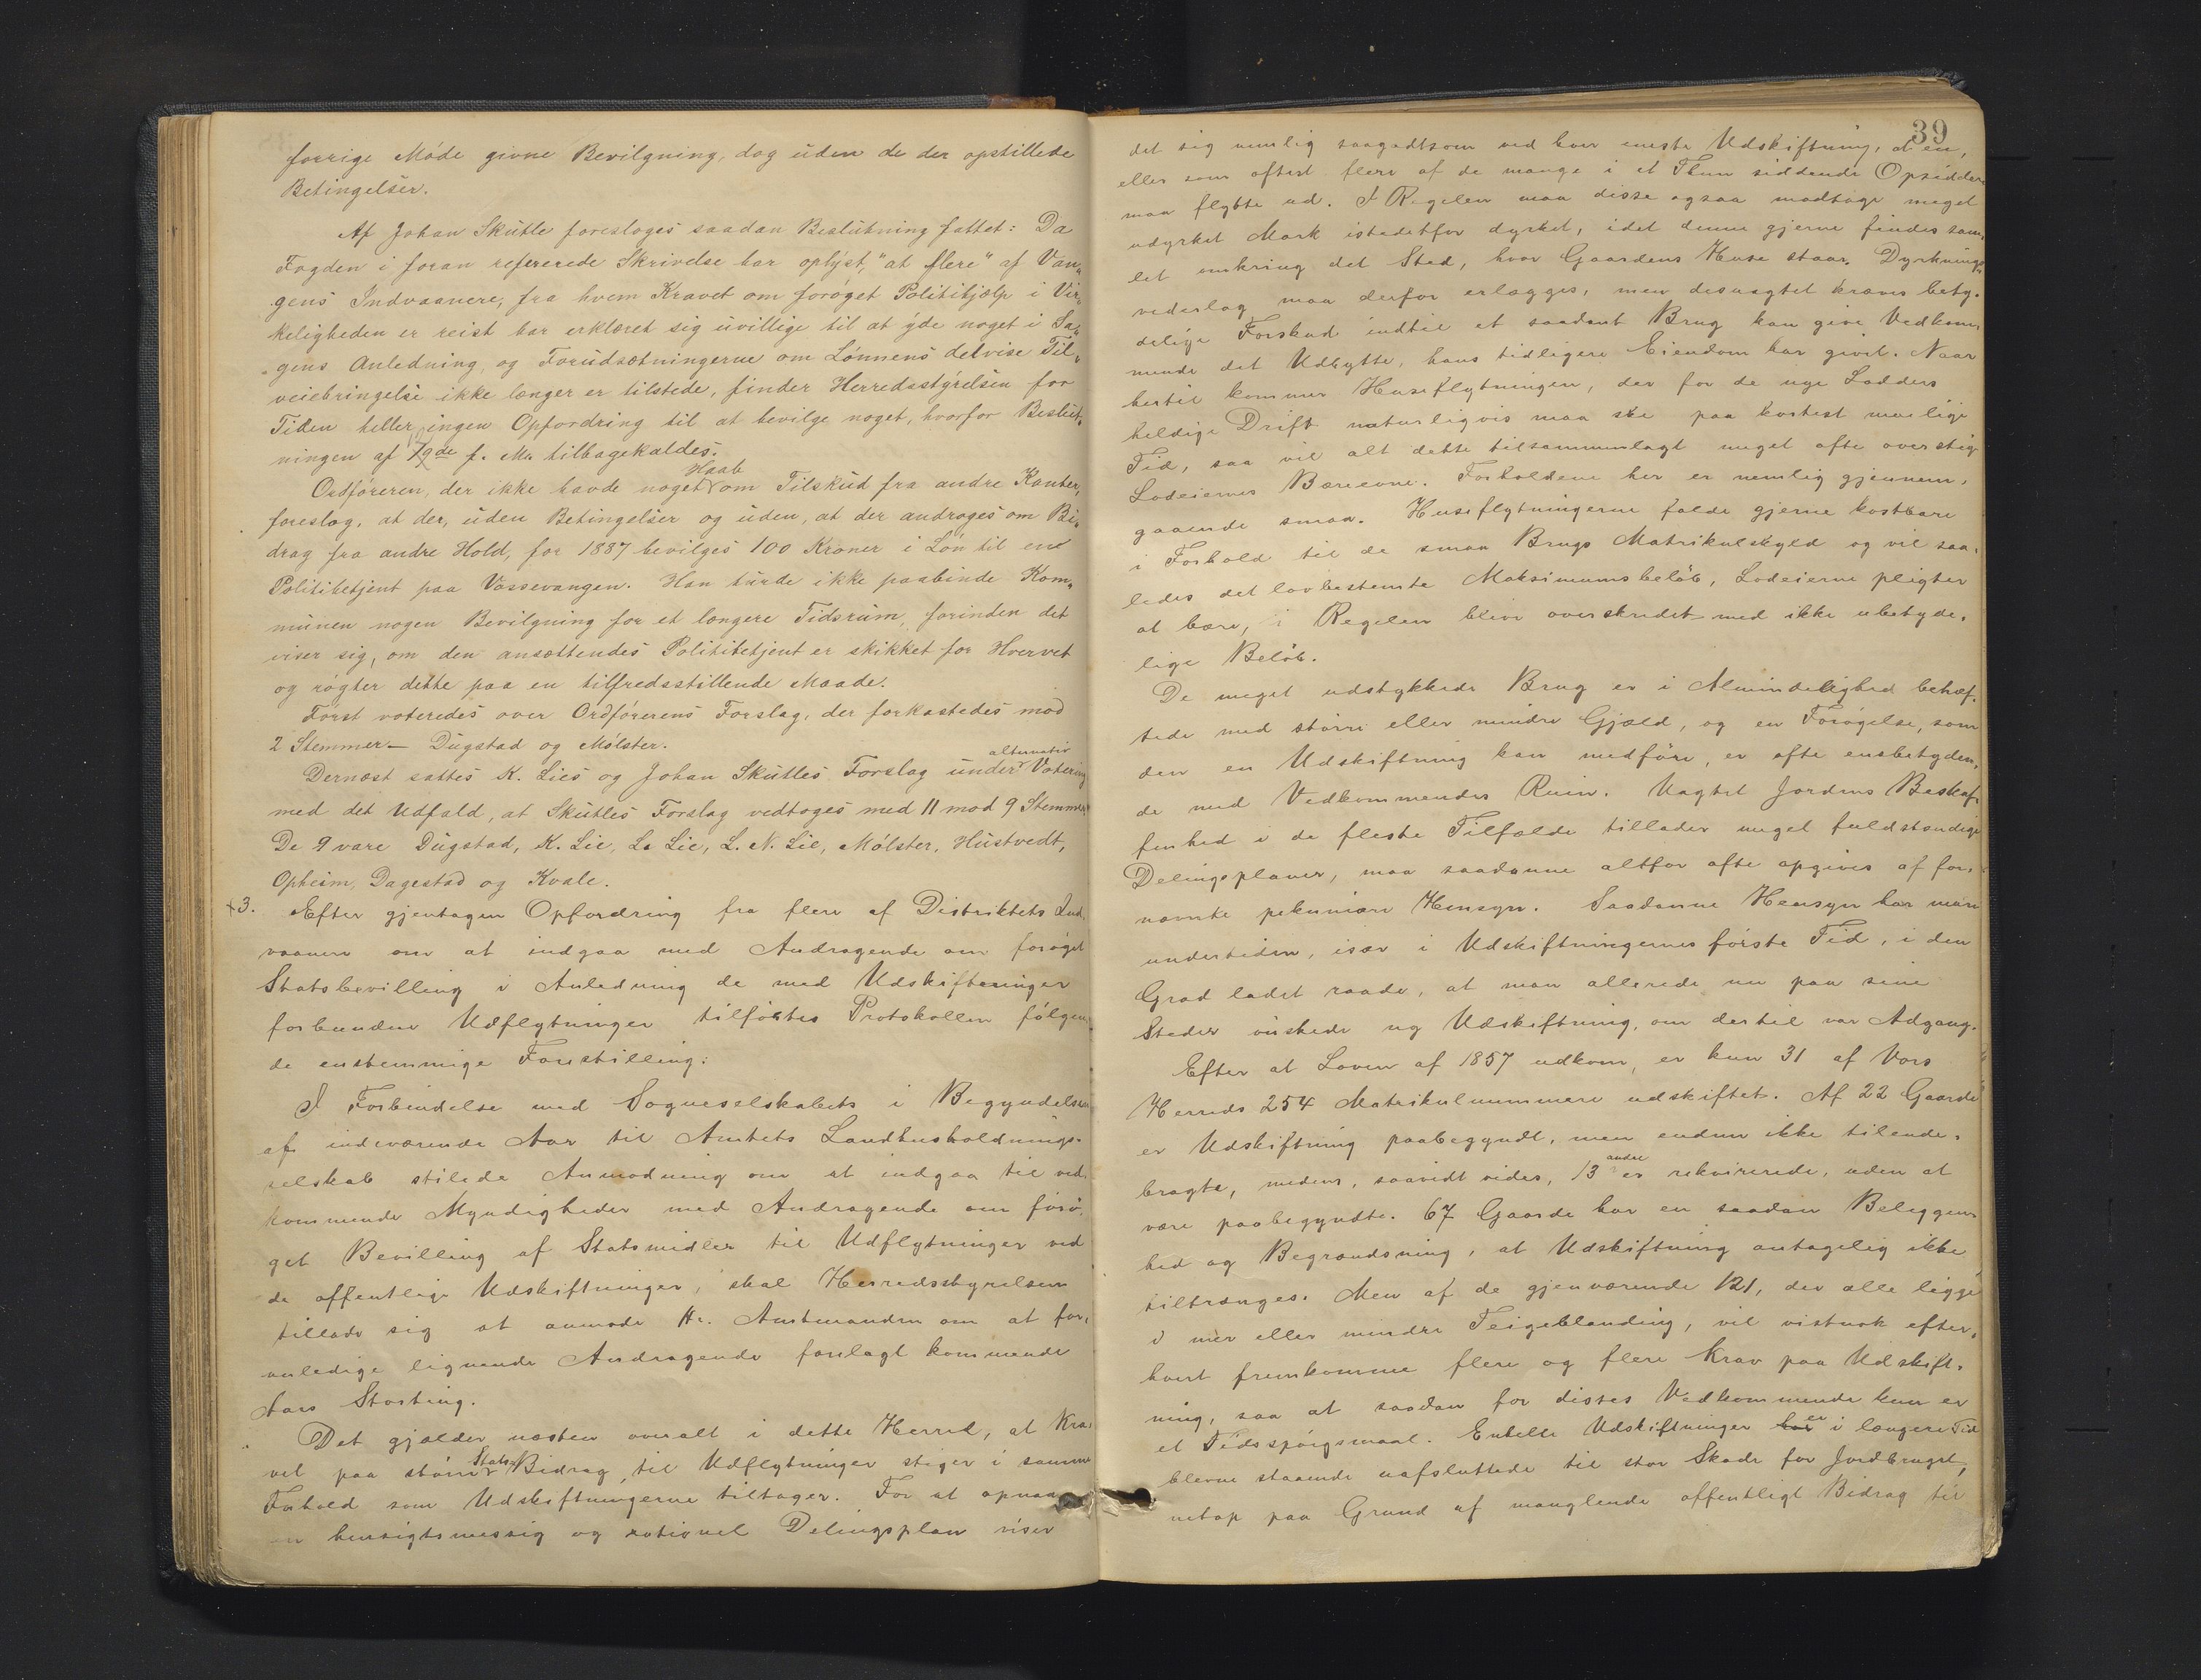 forrige Møde givne Bevilgning, dog uden de der opstillede
Betingelser.
Af Johan Skutle foresloges saadan Beslutning fattet: Da
Fogden i foran refererede Skrivelse har oplyst, "at flere" af Van„
gens Indvaanere, fra hvem Kravet om forøget Politihjælp i Vir„
keligheden er reist har erklæret sig uvillige til at yde noget i Sa„
gens Anledning, og Forudsætningerne om Lønnens delvise Til„
veiebringelse ikke længer er tilstede, finder Herredsstyrelsen for
Tiden heller ingen Opfordring til at bevilge noget, hvorfor Beslut„
ningen af f. M. tilbagekaldes.
Ordføreren, der ikke havde noget Haab om Tilskud fra andre Kanter,
foreslog, at der, uden Betingelser og uden, at der androges om Bi„
drag fra andre Hold, for 1887 bevilges 100 Kroner i Løn til en
Politibetjent paa Vossevangen. Han turde ikke paabinde Kom„
munen nogen Bevilgning for et længere Tidsrum, forinden det
viser sig, om den ansættendes Politibetjent er skikket for Hvervet
og røgter dette paa en tilfredsstillende Maade.
Først voteredes over Ordførerens Forslag, der forkastedes mod
2 Stemmer — Dugstad og Mølster.
Dernæst sattes K. Lies og Johan Skutles Forslag under alternativ Votering
med det Udfald, at Skutles Forslag vedtoges med 11 mod 9 Stemmer.
De 9 vare Dugstad, K. Lie, L. Lie, L. N. Lie, Mølster, Hustvedt,
Opheim, Dagestad og Kvale.
+3. Efter gjentagen Opfordring fra flere af Distriktets Ind„
vaanere om at indgaa med Andragende om forøget
Statsbevilling i Anledning de med Udskiftninger
forbundne Udflytninger tilførtes Protokollen følgen„
de enstemmige Forestilling:
I Forbindelse med Sogneselskabets i Begyndelsen
af indeværende Aar til Amtets Landhusholdnings„
selskab stilede Anmodning om at indgaa til ved„
kommende Myndigheder med Andragende om forø„
get Bevilling af Statsmidler til Udflytninger ved
de offentlige Udskiftninger, skal Herredsstyrelsen
tillade sig at anmode Hr. Amtmanden om at for„
anledige lignende Andragende forelagt kommende
Aars Storting.
Det gjælder næsten overalt i dette Herred, at Kra„
vet paa større Stats Bidrag til Udflytninger stiger i samme
Forhold som Udskiftningerne tiltager. For at opnaa
en hensigtsmessig og rationel Delingsplan viser
39
det sig nemlig saagodtsom ved hver eneste Udskiftning, at en,
eller som oftest flere af de mange i et Thun siddende Opsiddere
maa flytte ud. I Regelen maa disse ogsaa modtage meget
udyrket Mark istedetfor dyrket, idet denne gjerne findes sam„
let omkring det Sted, hvor Gaardens Huse staar. Dyrknings„
vederlag maa derfor erlægges, men desuagtet kræves bety„
delige Forskud indtil et saadant Brug kan give Vedkom„
mende det Udbytte, hans tidligere Eiendom har givet. Naar
hertil kommer Huseflytningen, der for de nye Lodders
heldige Drift naturligvis maa ske paa kortest muelige
Tid, saa vil alt dette tilsammenlagt meget ofte overstige
Lodeiernes Bæreevne. Forholdene her er nemlig gjennem„
gaaende smaa. Huseflytningerne falde gjerne kostbare
i Forhold til de smaa Brugs Matrikulskyld og vil saa„
ledes det lovbestemte Maksimumsbeløb, Lodeierne pligter
at bære, i Regelen blive overskredet med ikke ubetyde„
lige Beløb.
De meget udstykkede Brug er i Almindelighed behæf„
tede med større eller mindre Gjæld, og en Forøgelse, som
den en Udskiftning kan medføre, er ofte ensbetyden„
de med Vedkommendes Ruin. Uagtet Jordens Beskaf„
fenhed i de fleste Tilfælde tillader meget fuldstændige
Delingsplaner, maa saadanne altfor ofte opgives af for„
nævnte pekuniære Hensyn. Saadanne Hensyn har man
undertiden, især i Udskiftningernes første Tid, i den
Grad ladet raade, at man allerede nu paa sine
Steder ønskede ny Udskiftning, om dertil var Adgang.
Efter at Loven af 1857 udkom, er kun 31 af Vors
Herreds 254 Matrikulnummere udskiftet. Af 22 Gaarde
er Udskiftning paabegyndt, men endnu ikke tilende„
bragte, medens, saavidt vides, 13 andre er rekvirerede, uden at
være paabegyndte. 67 Gaarde har en saadan Beliggen„
hed og Begrændsning, at Udskiftning antagelig ikke
tiltrænges. Men af de gjenværende 121, der alle ligge
i mer eller mindre Teigeblanding, vil vistnok efter„
hvert fremkomme flere og flere Krav paa Udskift„
ning, saa at saadan for disses Vedkommende kun er
et Tidsspørgsmaal. Enkelte Udskiftninger er i længere Tid
blevne staaende uafsluttede til stor Skade for Jordbruget,
netop paa Grund af manglende offentligt Bidrag til